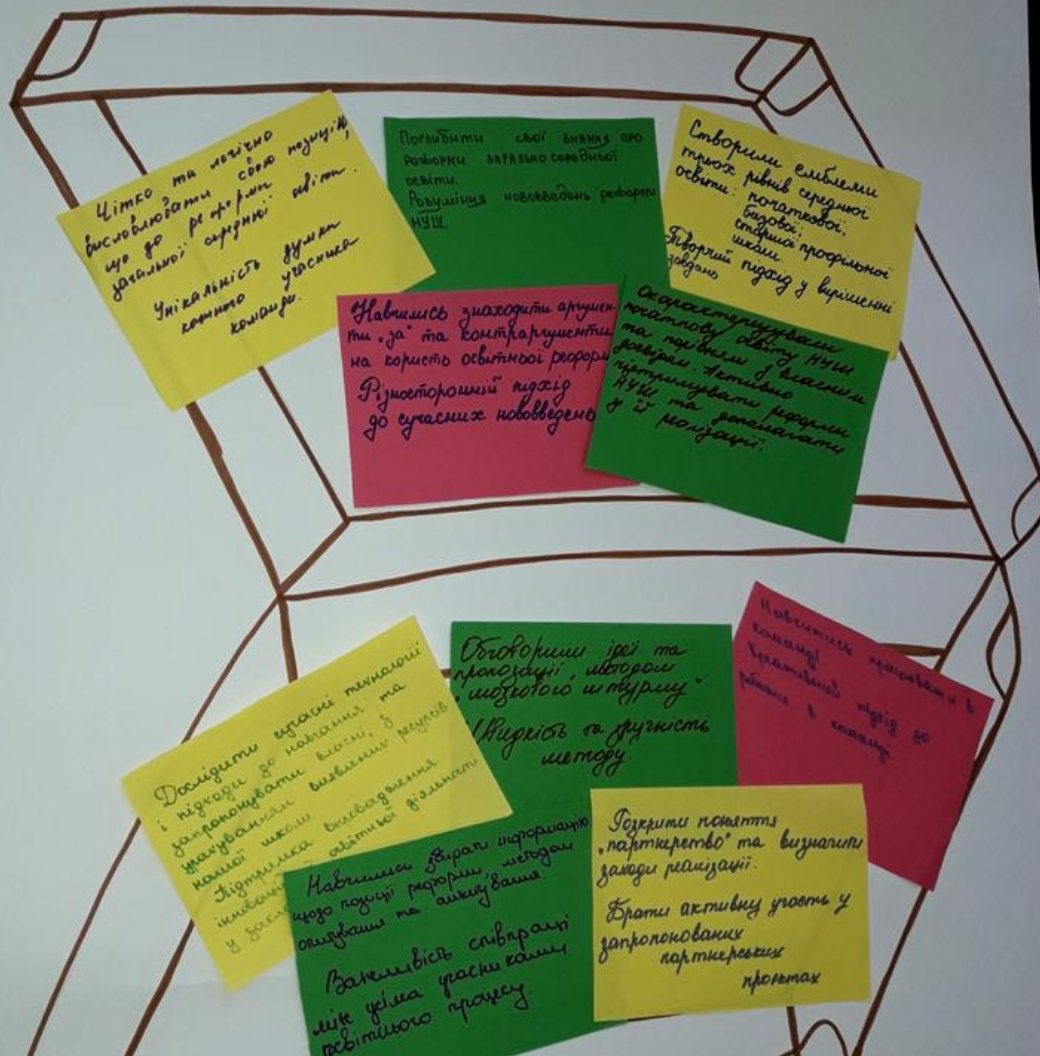 Чітко та логічно
висловлювати свою позицію,
що до реформи
загальної середньої освіти.
Унікальність думки
кожного учасника
команди.
Поглибити свої знання про
реформи загально середньої
освіти.
Розуміння нововведень реформи
НУШ.
Створили емблеми
трьох рівнів середньої
освіти: початкової;
базової;
старшої профільної
школи
Творчий підхід у вирішенні
завдань
Навчились знаходити аргумен-
ти „за" та контраргументи
на користь освітньої реформи
Різносторонній підхід
до сучасних нововведень
Охарактеризували
початкову освіту НУШ
та порівняли з власним
досвідом. Активно
підтримувати реформи
НУШ та допомагати
у її реалізації.
Дослідити сучасні технології
і підходи до навчання та
запропонувати власні, з
урахуванням виявлених ресурсів
нашої школи.
Підтримка впровадження
інновацій освітньої діяльності
у
Обговорили ідеї та
пропозиції, методом
„мозкового штурму"
Швидкість та зручність
методу.
Навчитись працювати в
команді.
Креативний підхід до
роботи в команді
Навчились збирати інформацію
щодо позиції реформи, методом
опитування та анкетування.
Важливість співпраці
між усіма учасниками
освітнього процесу.
Розкрити поняття
„партнерство" та визначити
заходи реалізації.
Брати активну участь у
запропонованих
партнерських
проєктах